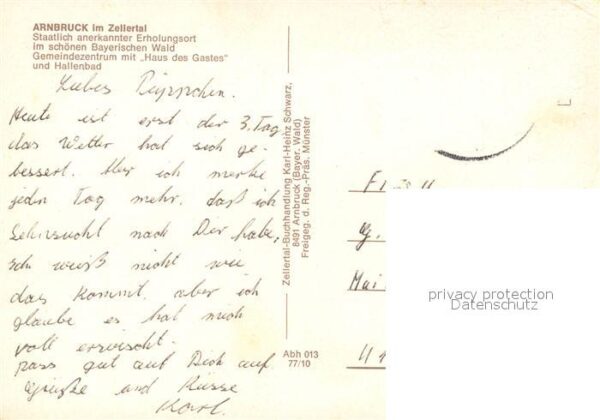 ARNBRUCK im Zellertal
Staatlich anerkannter Erholungsort
im schönen Bayerischen Wald
Gemeindezentrum mit „Haus des Gastes"
und Hallenbad
Liebes
Heute ist erst der 3. Tag
das Wetter hat sich ge-
bessert. Aber ich merke
jedn Tag mehr, daß ich
Sehnsucht nach Dir habe,
Ich weiß nicht wie
das kommt, aber ich
glaube es hat mich
voll erwischt.
pass gut auf Dich auf
Grüße und Küsse
Karl.
Zellertal-Buchhandlung Karl-Heinz Schwarz,
8491 Arnbruck (Bayer. Wald)
Freigeg. d. Reg.-Präs. Münster
Abh 013
77/10
privacy protection
Datenschutz